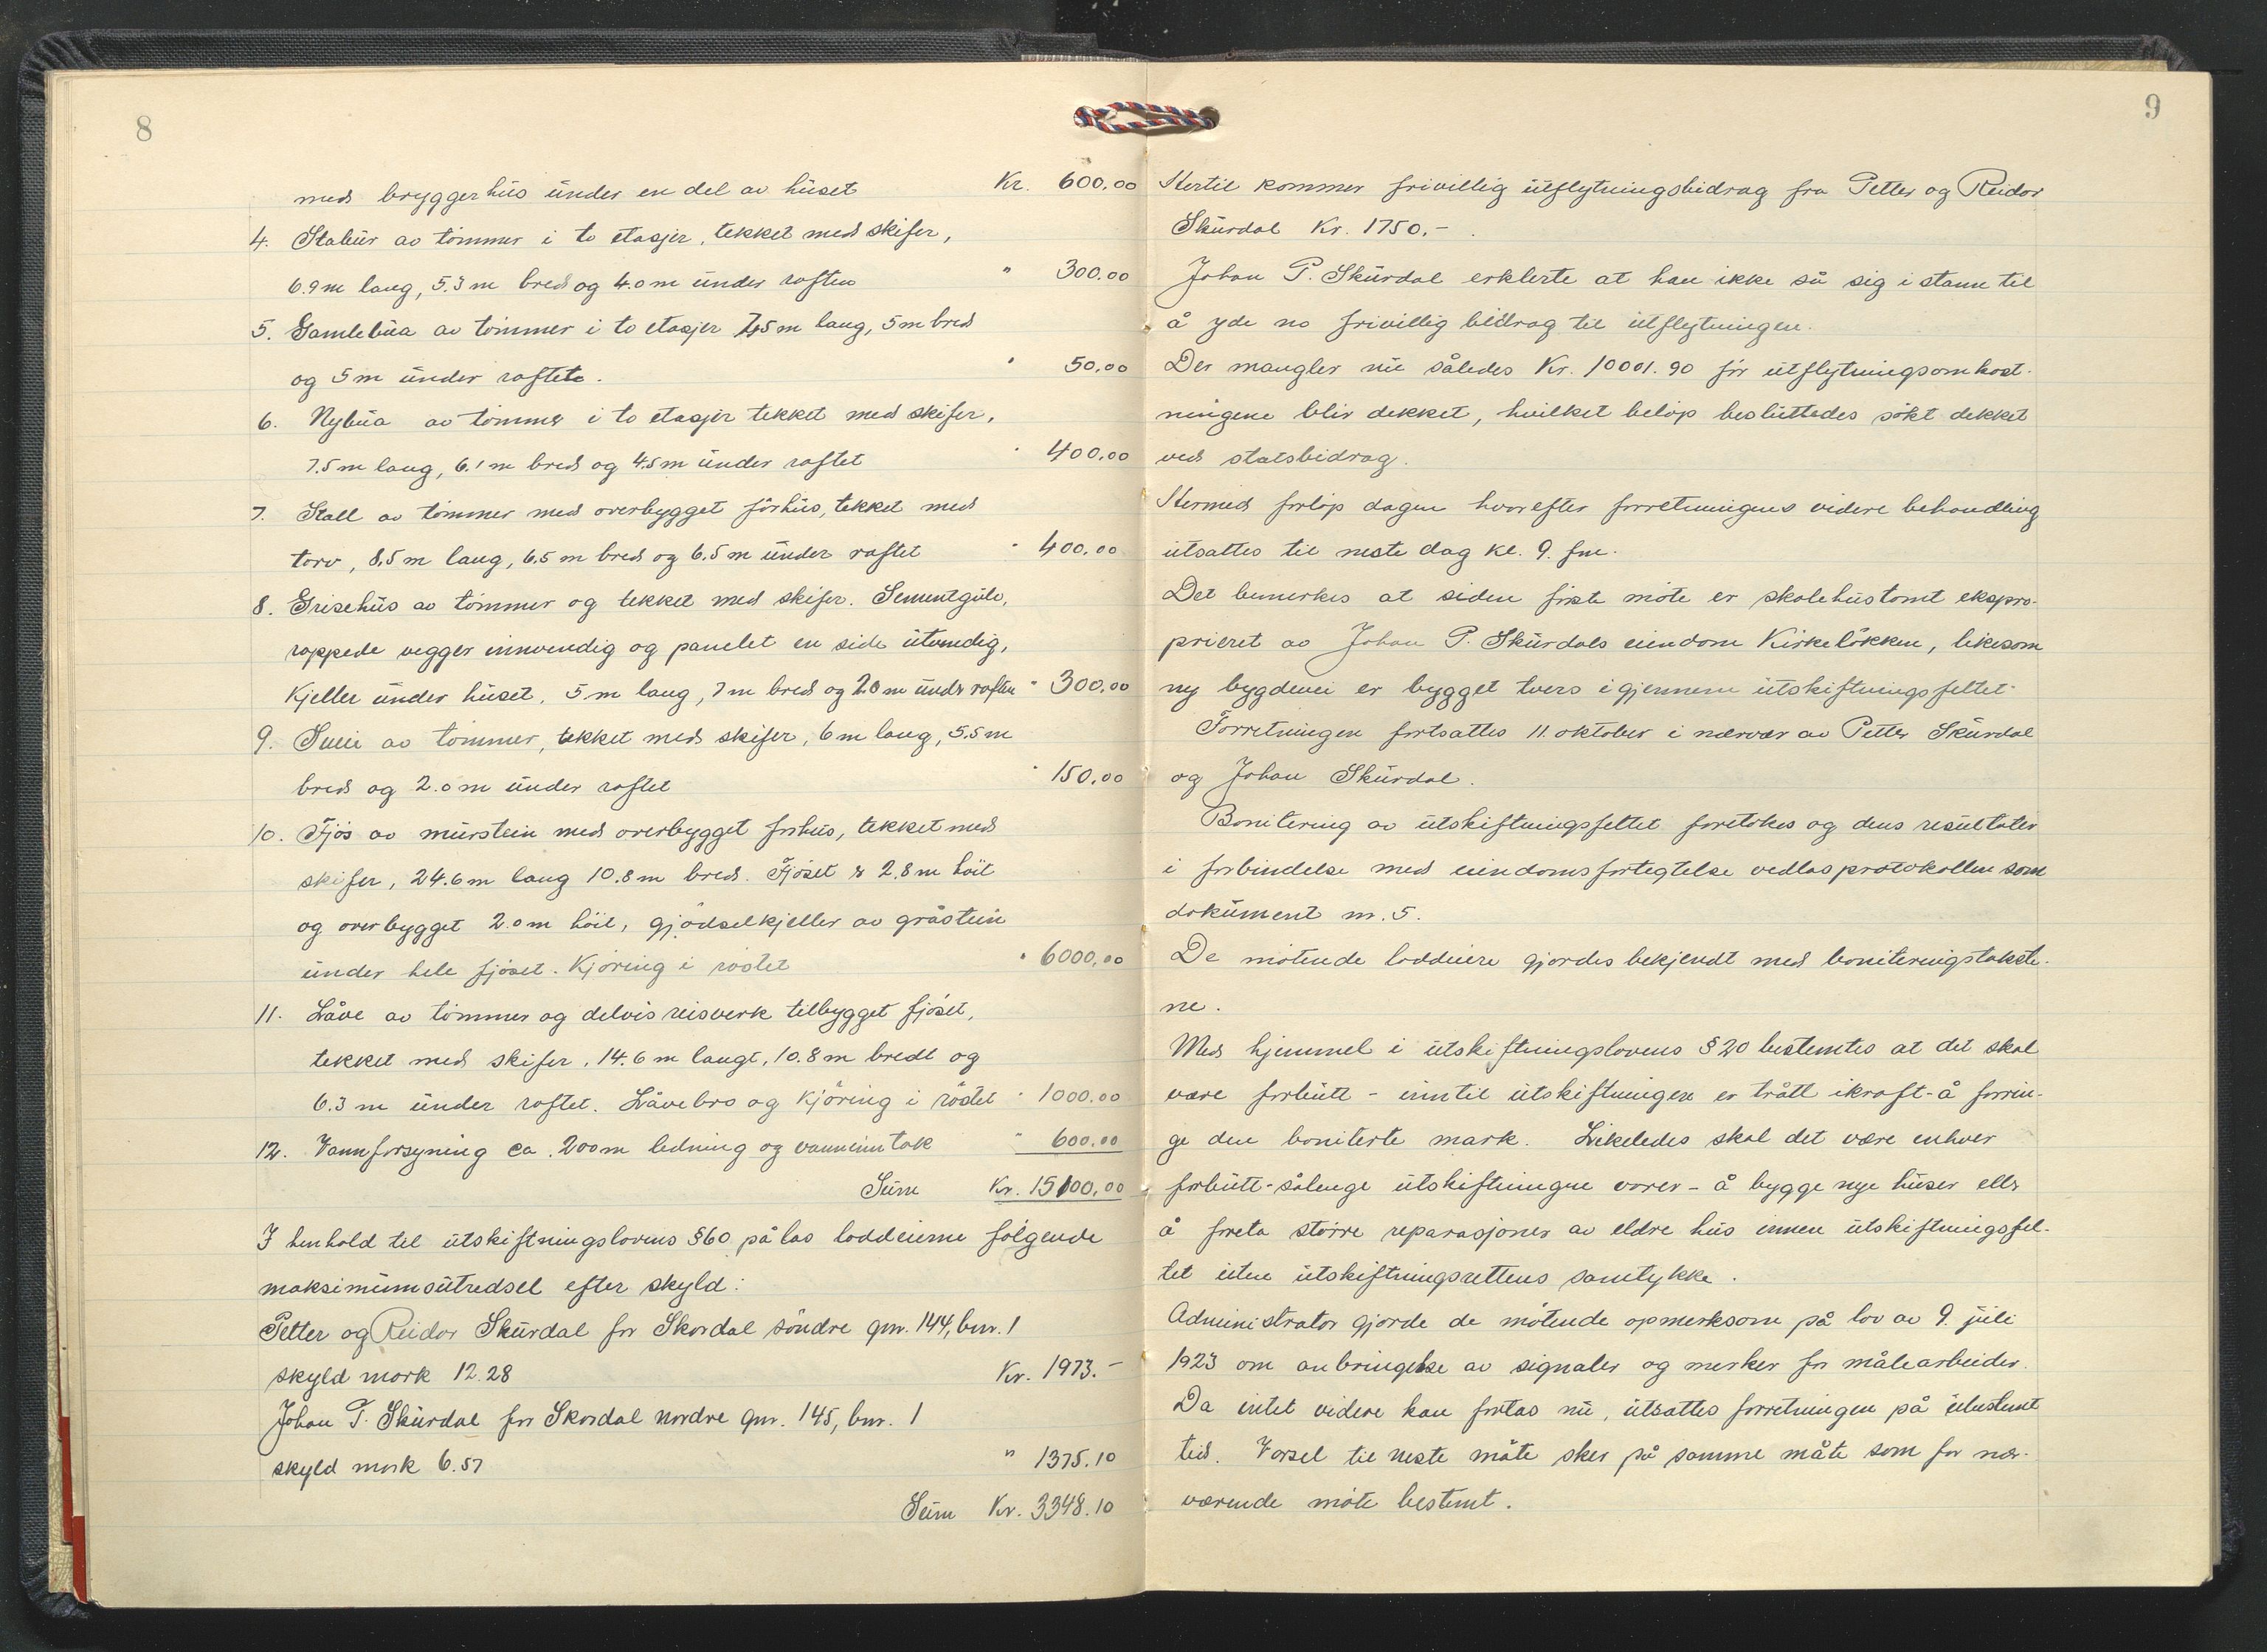 8
med bryggerhus under en del av huset Kr. 600.00
4. Stabur av tømmer i to etasjer, tekket med skifer,
6.9 m lang, 5.3 m bred og 4.0 m under raften " 300.00
5. Gamlebua av tømmer i to etasjer 7,5 m lang, 5 m bred
og 5 m under raftet. " 50.00
6. Nybua av tømmer i to etasjer tekket med skifer,
7.5 m lang, 6.1 m bred og 4.5 m under raftet " 400.00
7. Stall av tømmer med overbygget fôrhus, tekket med
torv, 8,5 m lang, 6.5 m bred og 6.5 m under raftet " 400.00
8. Grisehus av tømmer og tekket med skifer. Sementgulv,
rappede vegger innvendig og panelet en side utvendig,
Kjeller under huset, 5 m lang, 7 m bred og 2.0 m under raften " 300.00
9. Smie av tømmer, tekket med skifer, 6 m lang, 5.5 m
bred og 2.0 m under raftet " 150.00
10. Fjøs av murstein med overbygget forhus, tekket med
skifer, 24.6 m lang 10.8 m bred. Fjøset er 2.8 m høit
og overbygget 2.0 m høit, gjødselkjeller av gråstein
under hele fjøset. Kjøring i røstet " 6000.00
11. Låve av tømmer og delvis reisverk tilbygget fjøset,
tekket med skifer, 14.6 m langt, 10.8 m bredt og
6.3 m under raftet. Låvebro og kjøring i røstet " 1000.00
12. Vannforsyning ca. 200 m ledning og vanninntak " 600.00
Sum Kr. 15100.00
I henhold til utskiftningslovens §60 pålas loddeierne følgende
maksimumsutredsel efter skyld:
Petter og Reidar Skurdal for Skordal søndre gnr. 144, bnr. 1
skyld mark 12.28 Kr. 1973.-
Johan P. Skurdal for Skordal nordre gnr. 145, bnr. 1
skyld mark 6.57 " 1375.10
Sum Kr. 3348.10
9
Hertil kommer frivillig utflytningsbidrag fra Petter og Reidar
Skurdal Kr. 1750.-
Johan P. Skurdal erklerte at han ikke så sig i stann til
å yde no frivillig bidrag til utflytningen.
Der mangler nu således Kr. 10001.90 før utflytningsomkost-
ningene blir dekket, hvilket beløp besluttedes søkt dekket
ved statsbidrag.
Hermed forløp dagen hvorefter forretningens videre behandling
utsattes til neste dag kl. 9. fm.
Det bemerkes at siden første møte er skolehustomt ekspro-
prieret av Johan P. Skurdals eiendom Kirkeløkken, likesom
ny bygdevei er bygget tvers igjennem utskiftningsfeltet.
Forretningen fortsattes 11. oktober i nærvær av Petter Skurdal
og Johan Skurdal.
Bonitering av utskiftningsfeltet foretokes og dens resultater
i forbindelse med eiendomsfortegtelse vedlas protokollen som
dokument nr. 5.
De møtende loddeiere gjordes bekjendt med boniteringstakste-
ne.
Med hjemmel i utskiftningslovens §20 bestemtes at det skal
være forbutt - inntil utskiftningen er trått ikraft - å forrin-
ge den boniterte mark. Likeledes skal det være enhver
forbutt - sålenge utskiftningen varer - å bygge nye huser eller
å foreta større reparasjoner av eldre hus innen utskiftningsfel-
tet uten utskiftningsrettens samtykke.
Administrator gjorde de møtende opmerksom på lov av 9. juli
1923 om anbringelse av signaler og merker for målearbeider.
Da intet videre kan fortas nu, utsattes forretningen på ubestemt
tid. Varsel til neste møte sker på samme måte som for nær-
værende møte bestemt.